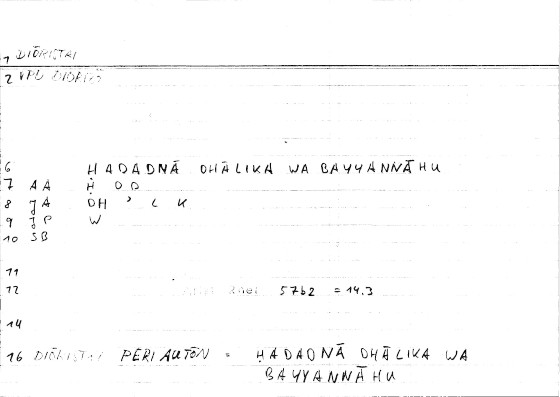 1 DIŌRISTAI
2 VPB DIORIZŌ
6 ḤADADNĀ DHĀLIKA WA BAYYANNĀHU
7 AA Ḥ D D
8 JA DH ʾ L K
9 JP W
10 SB
11
12 5762 = 14.3
14
16 DIŌRISTAI PERI AUTŌN = ḤADADNĀ DHĀLIKA WA
BAYYANNĀHU